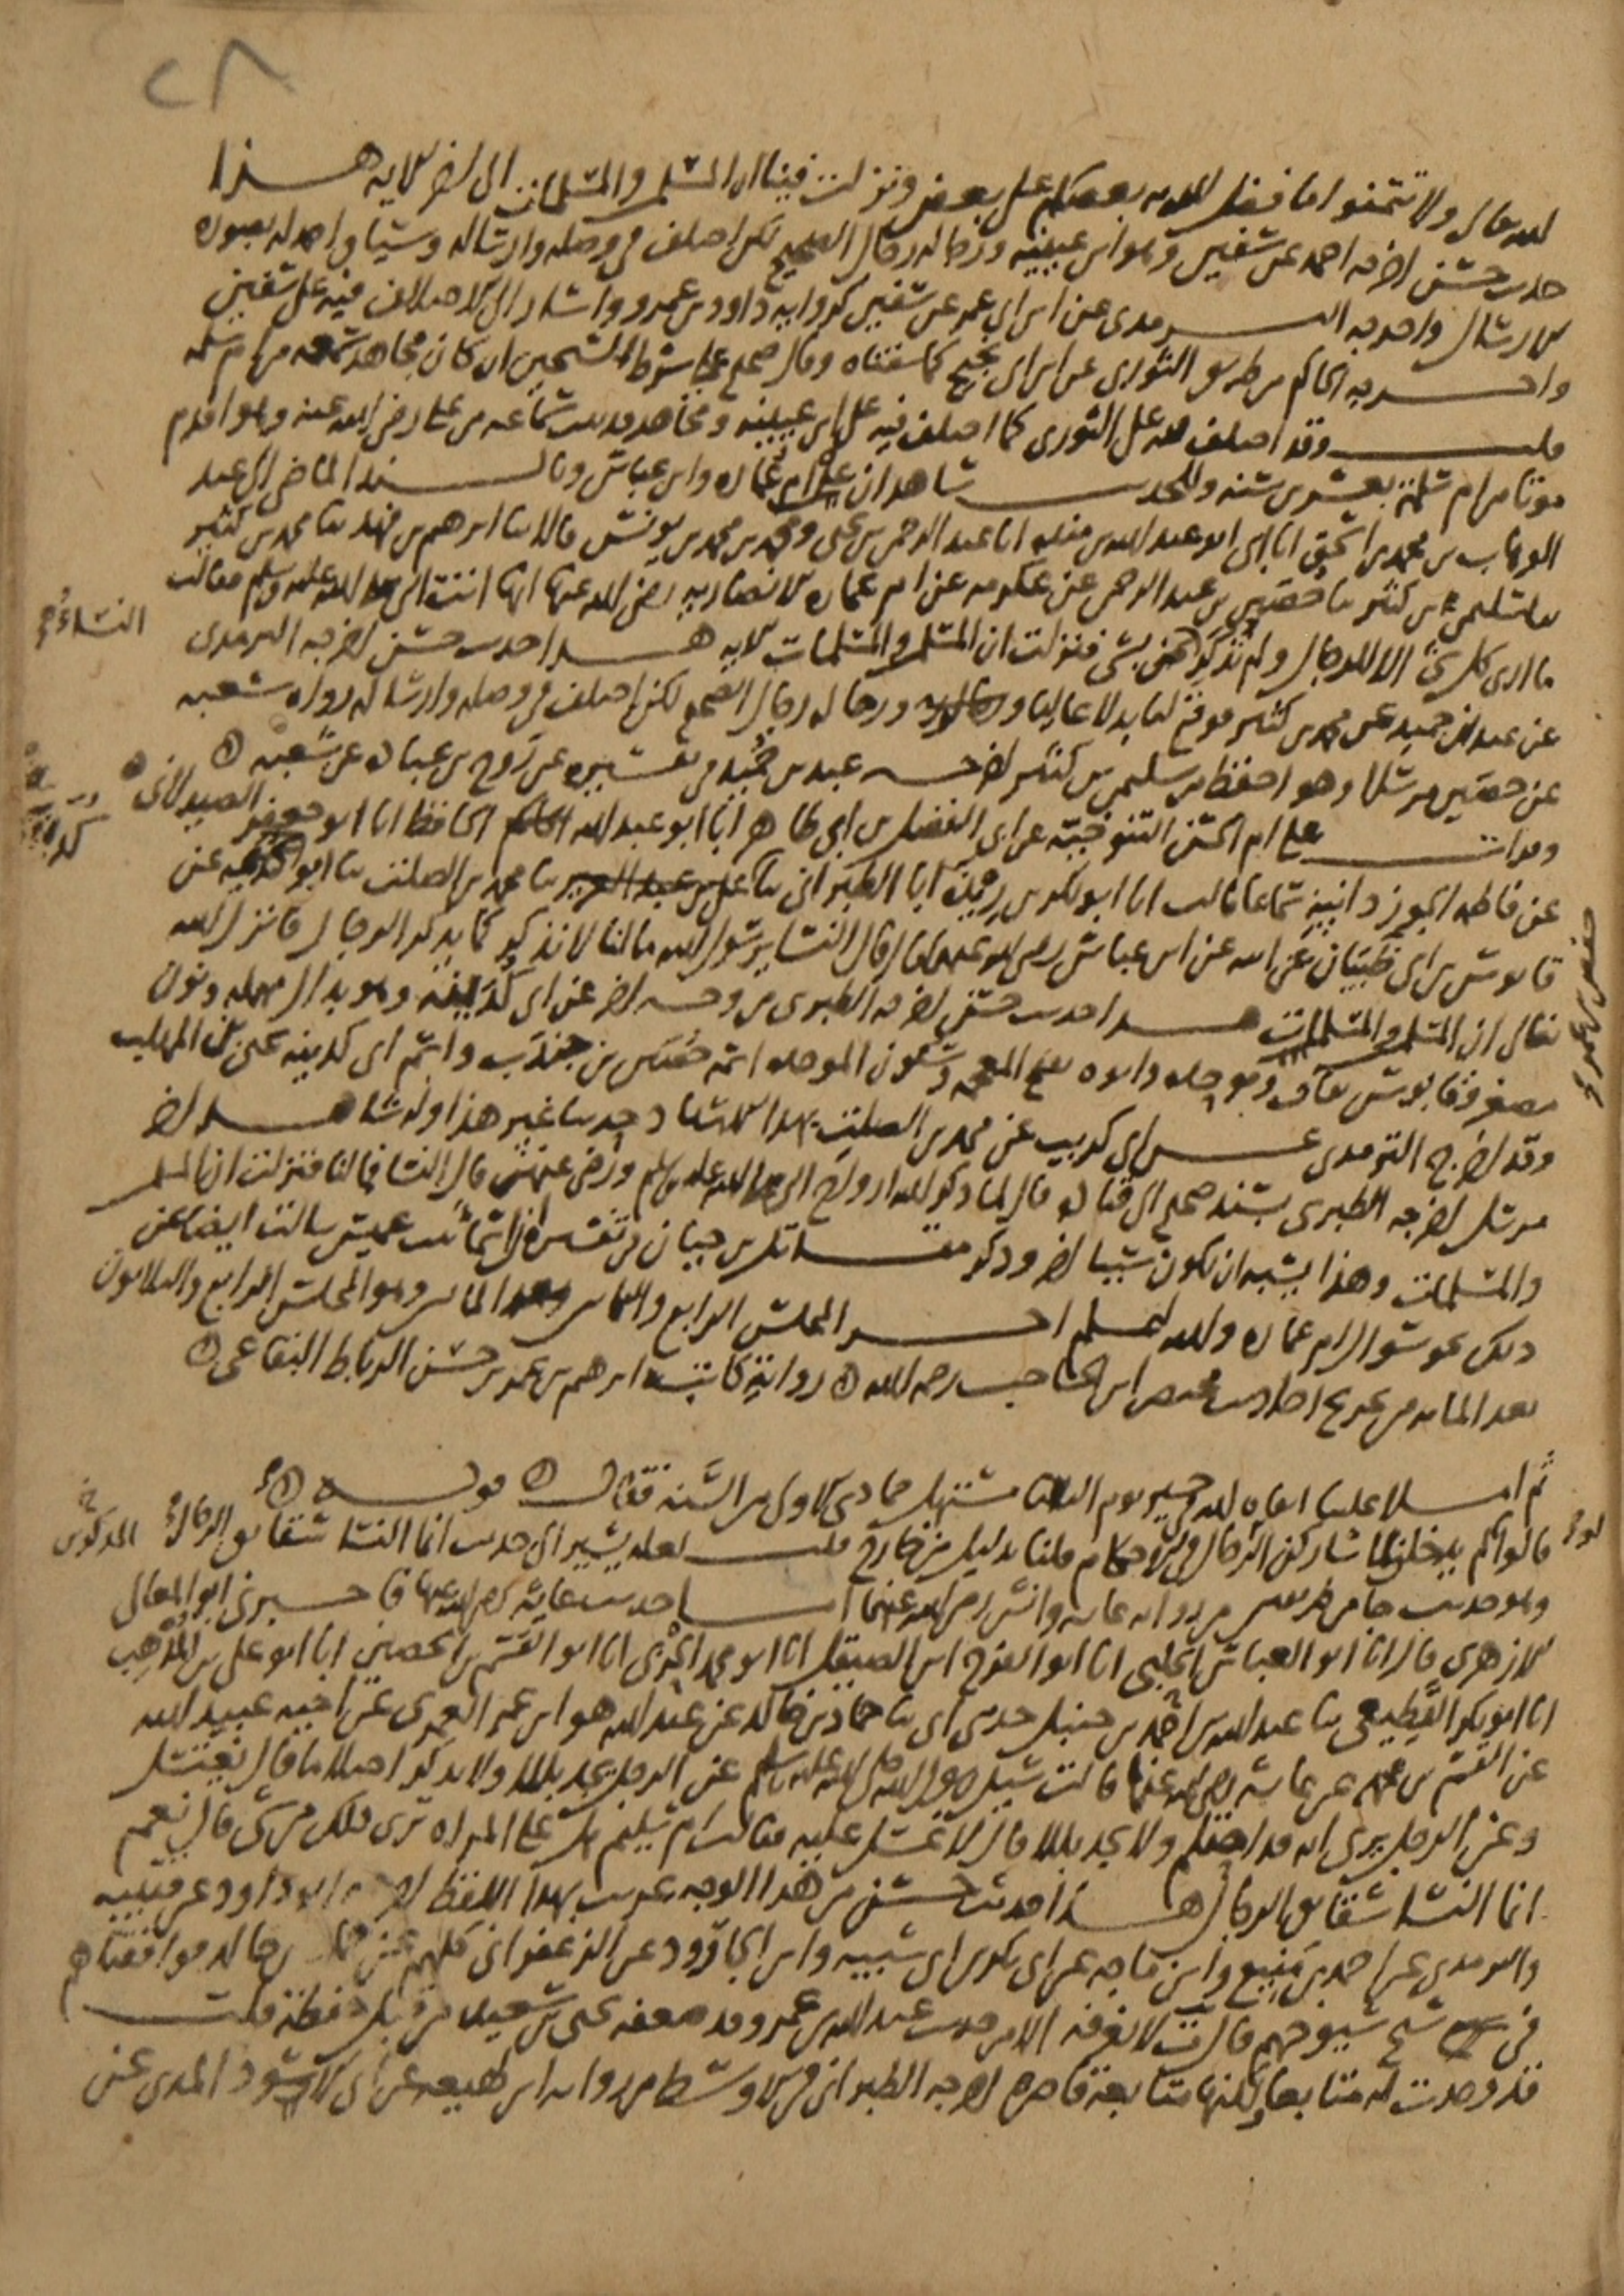 ٢٨
الله تعالى ولا تتمنوا ما فضل الله به بعضكم على بعض ونزلت فينا ان المسلمين والمسلمات الى اخر الآية هذا
حديث حسن اخرجه احمد عن سفين وهو ابن عيينة ورجاله رجال الصحيح لكن اختلف في وصله وارساله وسياق احمد له بصورة
الارسال واخرجه الترمذي عن ابن ابي عمر عن سفين كرواية داود بن عمرو واشار الى الاختلاف فيه على سفين
واخرجه الحاكم من طريق الثوري عن ابن ابي نجيح كما سقناه وقال صحيح على شرط الشيخين ان كان مجاهد سمعه من ام سلمة
قلت وقد اختلف فيه على الثوري كما اختلف فيه على ابن عيينة ومجاهد قد ثبت سماعه من علي رضي الله عنه وهو اقدم
موتا من ام سلمة بعشرين سنة وللحديث شاهدان عن ام عمارة وابن عباس وبالسند الماضي الى عبد
الوهاب بن محمد بن اسحق انا ابي ابو عبد الله بن منده انا عبد الرحمن بن يحيى ومحمد بن محمد بن يونس قالا ثنا ابرهيم بن فهد ثنا محمد بن كثير
ثنا سليمن بن كثير ثنا حصين بن عبد الرحمن عن عكرمة عن ام عمارة الانصارية رضي الله عنها انها اتت النبي صلى الله عليه وسلم فقالت
ما ارى كل شئ الا للرجال ولم تذكر النساء بشئ فنزلت ان المسلمين والمسلمات الآية هذا حديث حسن اخرجه الترمذي
النساء صح
عن عبد بن حميد عن محمد بن كثير فوقع لنا بدلا عاليا ورجاله رجال الصحيح لكن اختلف في وصله وارساله رواه شعبة
عن حصين مرسلا وهو احفظ من سليمن بن كثير اخرجه عبد بن حميد في تفسيره عن روح بن عبادة عن شعبة
وقرات على ام الحسن التنوخية عن ابي الفضل بن ابي طاهر انا ابو عبد الله الحافظ انا ابو جعفر الصيدلاني
عن فاطمة الجوزدانية سماعا قالت انا ابو بكر بن ريذة انا الطبراني ثنا محمد بن الصلت ثنا ابو كدينة عن
قابوس بن ابي ظبيان عن ابيه عن ابن عباس رضي الله عنهما قال قال النساء يا رسول الله ما لنا لا نذكر كما يذكر الرجال فانزل الله
تعالى ان المسلمين والمسلمات هذا حديث حسن اخرجه الطبري من وجه اخر عن ابي كدينة وهو بدال مهملة ونون
مصغر وقابوس بقاف وموحدة وابوه بفتح المعجمة وسكون الموحدة اسمه حصين بن جندب واسم ابي كدينة يحيى بن المهلب
وقد اخرج الترمذي عن ابي كريب عن محمد بن الصلت بهذا الاسناد حديثا غير هذا وله شاهد اخر
مرسل اخرجه الطبري بسند صحيح الى قتادة قال لما ذكر الله ازواج النبي صلى الله عليه وسلم ورضي عنهن قال النساء فما لنا فنزلت ان المسلمين
والمسلمات وهذا يشبه ان يكون سببا اخر وذكر مقاتل بن حيان في تفسيره ان اسماء بنت عميس سالت ايضا عن
ذلك نحو سؤال ام عمارة والله اعلم اخر المجلس الرابع والثلاثين بعد المائتين وهو المجلس الرابع والثلاثون
بعد المائة من تخريج احاديث مختصر ابن الحاجب رحمه الله رواية كاتبه ابرهيم بن عمر بن حسن الرباط البقاعي
ثم املا علينا ابقاه الله في خير يوم الثلاثا مستهل جمادى الاولى من السنة فقال قوله
قالوا لم يدخلن لما شاركن الرجال في الاحكام قلنا بدليل خارج قلت لعله يشير الى حديث انما النساء شقائق الرجال
وهو حديث جاء من رواية عائشة وانس رضي الله عنهما اما حديث عائشة رضي الله عنها فاخبرني ابو المعالي
الازهري قال انا ابو العباس الحلبي انا ابو الفرج ابن الصيقل انا ابو محمد الحربي انا ابو القسم بن الحصين انا ابو علي بن المذهب
انا ابو بكر القطيعي ثنا عبد الله بن احمد بن حنبل حدثني ابي ثنا حماد بن خالد عن عبد الله هو ابن عمر العمري عن اخيه عبيد الله
عن القسم بن محمد عن عائشة رضي الله عنها قالت سئل رسول الله صلى الله عليه وسلم عن الرجل يجد بللا ولا يذكر احتلاما قال يغتسل
وعن الرجل يرى انه قد احتلم ولا يجد بللا قال لا غسل عليه فقالت ام سليم هل على المراة ترى ذلك من شئ قال نعم
انما النساء شقائق الرجال هذا حديث حسن من هذا الوجه غريب بهذا اللفظ اخرجه ابو داود عن قتيبة
والترمذي عن احمد بن منيع وابن ماجه عن ابي بكر بن ابي شيبة وابن الجارود عن الزعفراني كلهم عن حماد بن خالد فوافقناهم
في شيخ شيوخهم قال ت لا نعرفه الا من حديث عبد الله بن عمر وقد ضعفه يحيى بن سعيد من قبل حفظه قلت
قد وجدت له متابعا لكنها متابعة قاصرة اخرجه الطبراني في الاوسط من رواية ابن لهيعة عن ابي الاسود المدني عن